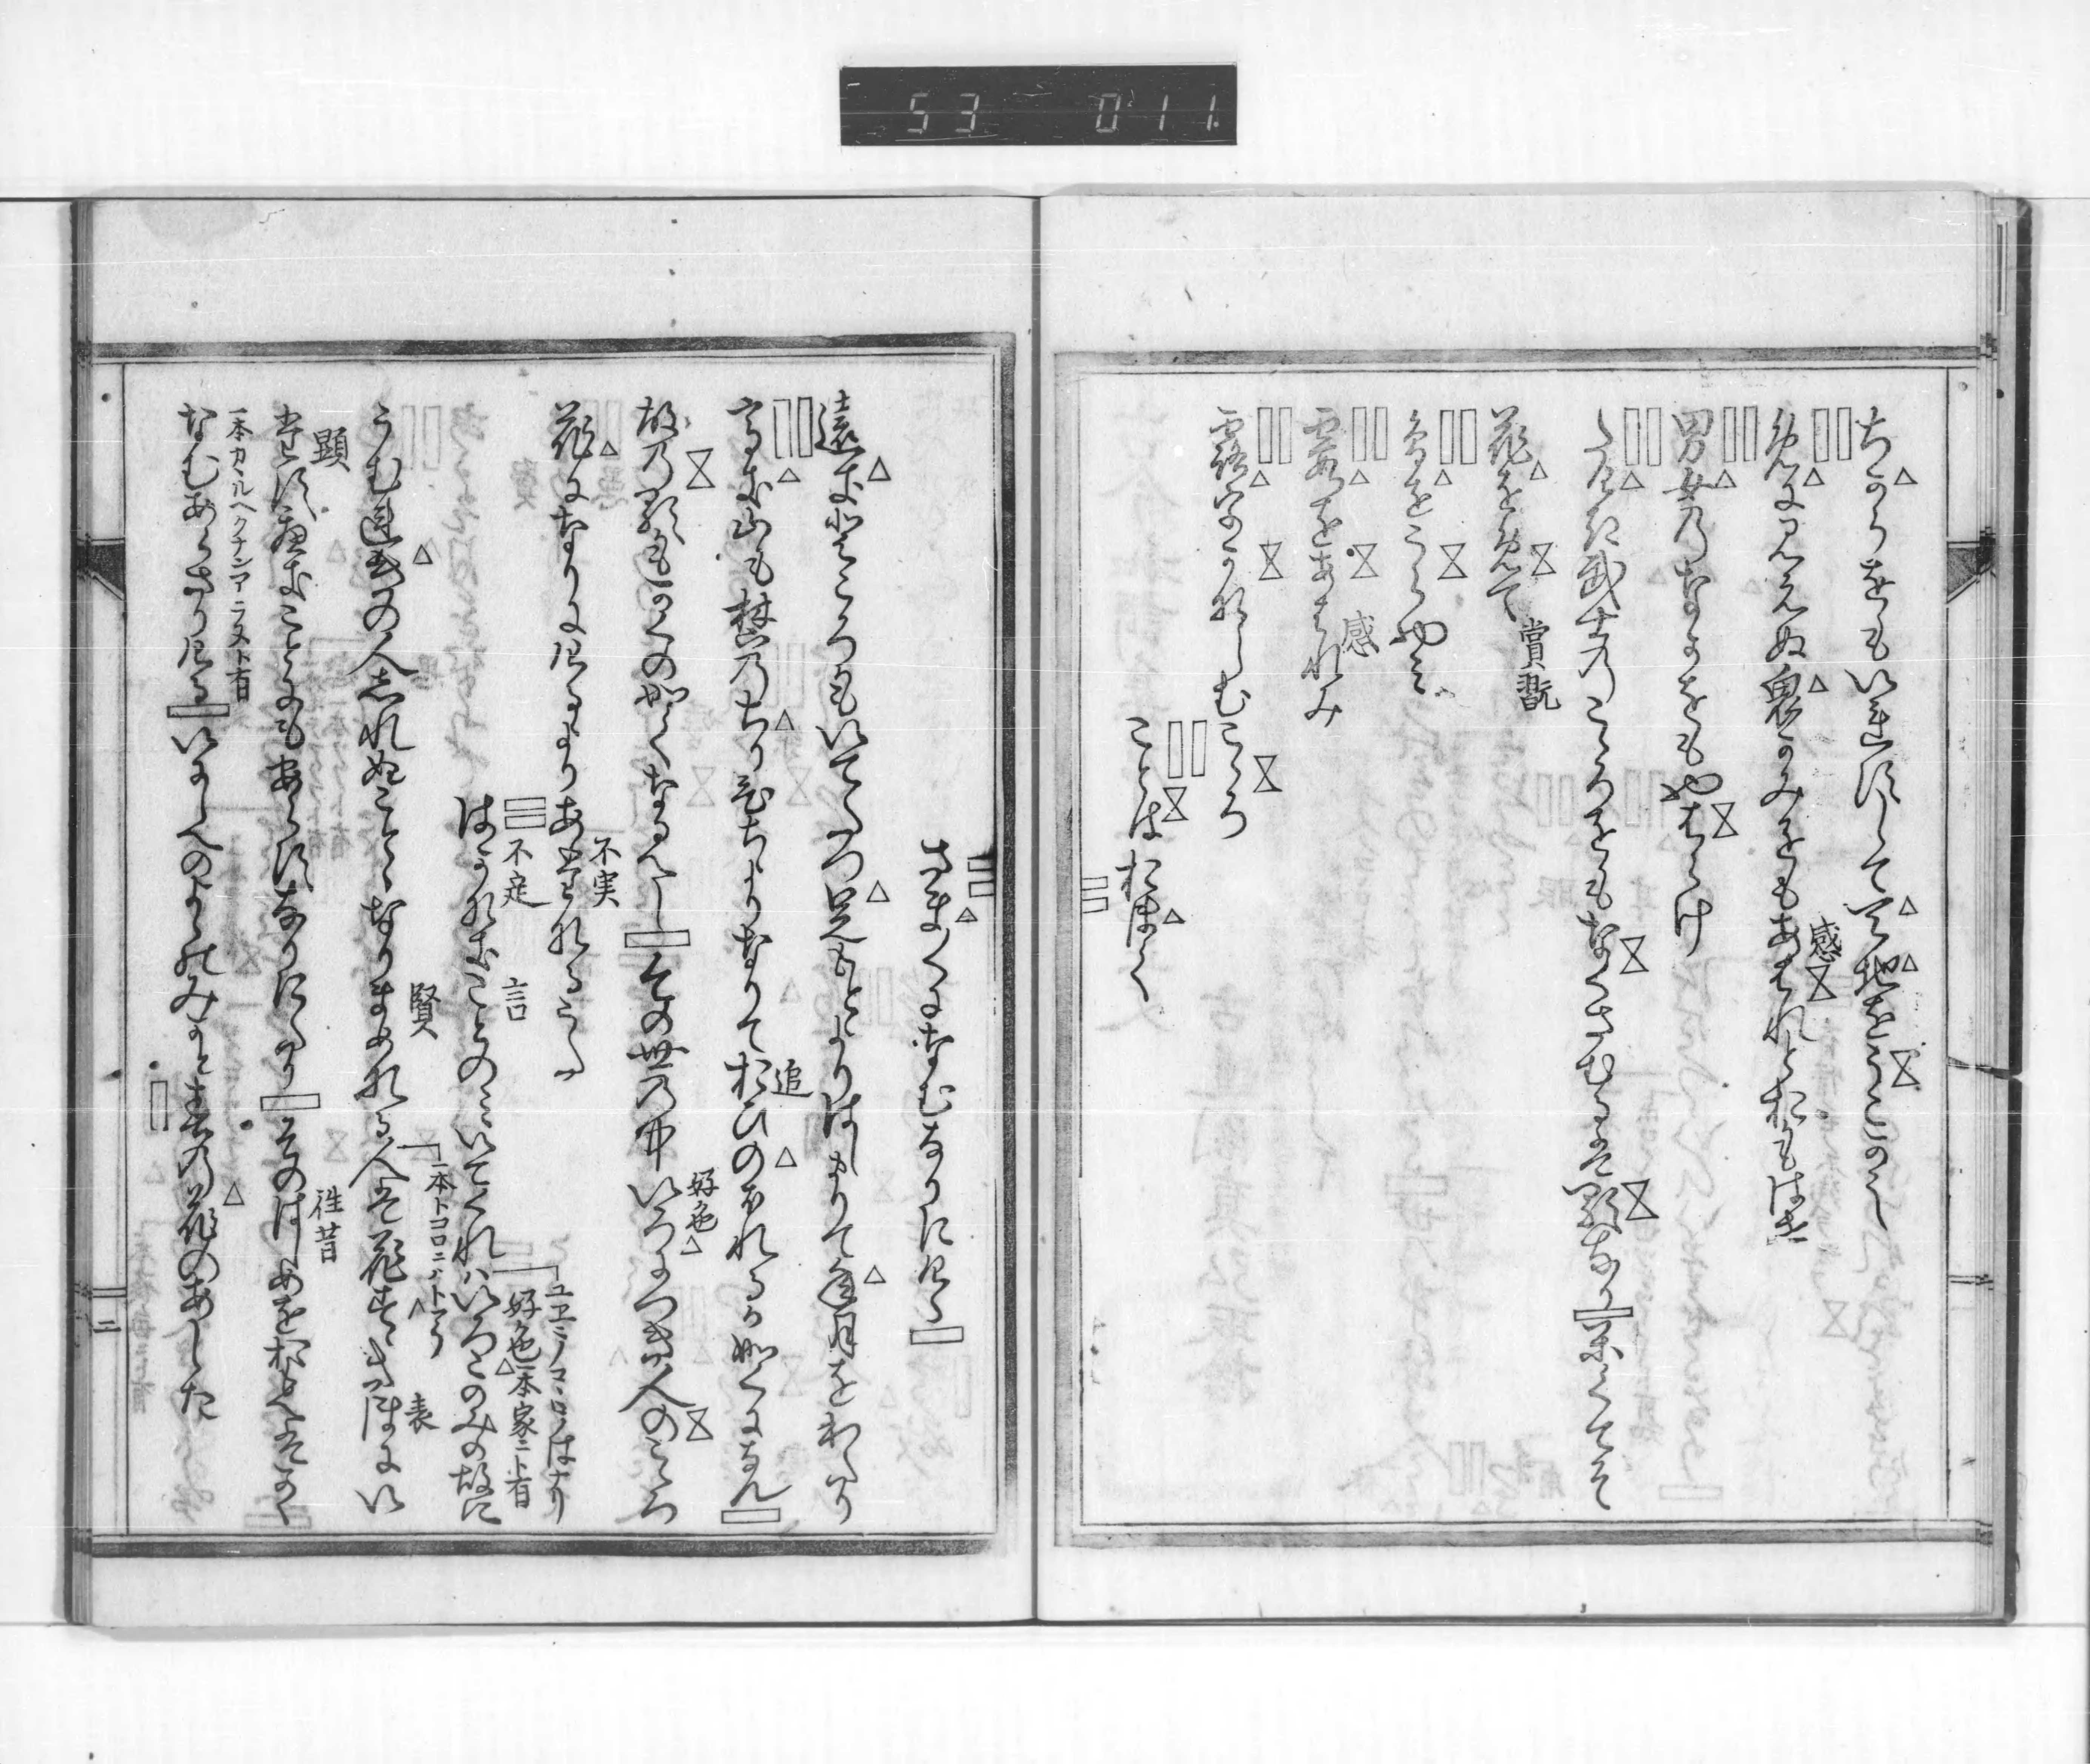 53 011
ちからをもいれすして天地をうこかし
めに見えぬ鬼かみをもあはれとおもはせ
感
男女のなかをもやはらけ
たけき武士のこゝろをもなくさむるは歌なり かくてそ
花をめて
賞翫
鳥をうらやみ
霞をあはれみ
感
露をかなしむこゝろ
ことはおほく
さま〱になむなりにける
遠きところもいてたつ足もとよりはしまりて年月をわたり
高き山も麓のちりひちよりなりておひのほれるか如くになん
追
故の歌もかくの如くなるへし 今の世の中いろにつき人のこゝろ
好色
花になりにけるよりあたなるうた
不実
はかなきことのみいてくれはいろこのみの故に
不定
言
ユヱニノコヽロハナリ
好色 一本家ニト有
うもれ木の人しれぬことゝなりまめなる人は花すゝきほにい
賢
一本トコロニハトアリ
表
たすへきことにもあらすなりにたり そのはしめをおもへはかく
顕
往昔
なむあらさりける いにしへのよのみかと春の花のあした
一本カヽルヘクナンアラヌト有
二